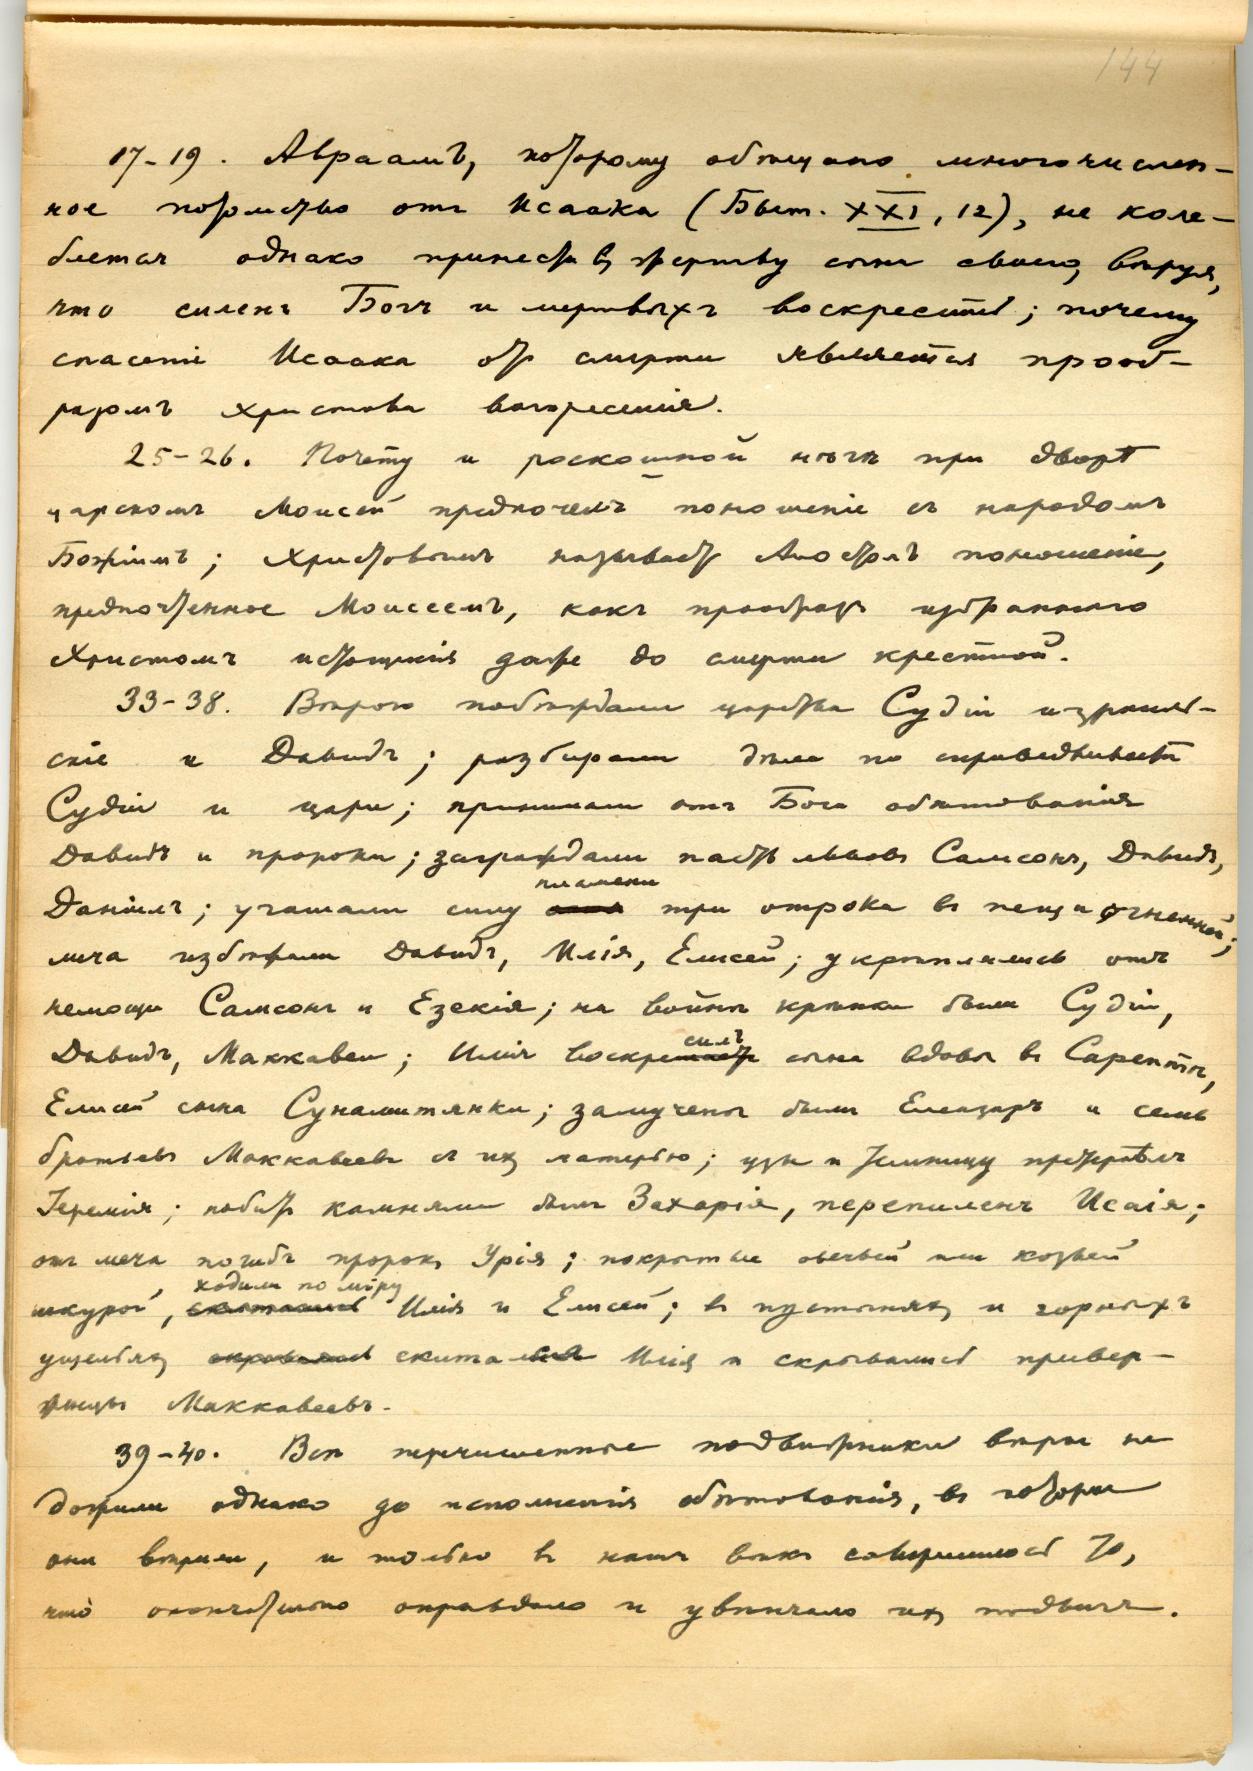 144
17-19. Авраамъ, которому обѣщано многочислен-
ное потомство отъ Исаака (Быт. XXI, 12), не коле-
блется однако принести въ жертву сына своего, вѣруя,
что силенъ Богъ и мертвыхъ воскресить; почему
спасеніе Исаака отъ смерти является прооб-
разомъ Христова воскресенія.
25-26. Почету и роскошной нѣгѣ при дворѣ
царскомъ Моисей предпочелъ поношеніе съ народомъ
Божіимъ; Христовымъ называетъ Апостолъ поношеніе,
предпочтенное Моисеемъ, какъ прообразъ избраннаго
Христомъ истощанія даже до смерти крестной.
33-38. Вѣрою побѣждали царства Судіи израиль-
скіе и Давидъ; разбирали дѣла по справедливости
Судіи и цари; принимали отъ Бога обѣтованія
Давидъ и пророки; заграждали пасть львовъ Самсонъ, Давидъ,
пламени
Даніилъ; угашали силу огня три отрока въ пещи огненной;
меча избѣжали Давидъ, Илія, Елисей; укрѣплялись отъ
немощи Самсонъ и Езекія; на войнѣ крѣпки были Судіи,
силъ
Давидъ, Маккавеи; Илія воскрешаетъ сына вдовы въ Сарептѣ,
Елисей сына Сунамитянки; замучены были Елеазаръ и семь
братьевъ Маккавеевъ съ ихъ матерью; узы и темницу претерпѣлъ
Іеремія; побитъ камнями былъ Захарія, перепиленъ Исаія;
отъ меча погибъ пророкъ Урія; покрытые овечьей или козьей
ходили по міру
шкурой, скитались Илія и Елисей; въ пустыняхъ и горныхъ
ущельяхъ скрывался скитался Илія и скрывались привер-
женцы Маккавеевъ.
39-40. Всѣ перечисленные подвижники вѣры не
дожили однако до исполненія обѣтованія, въ которое
они вѣрили, и только въ нашъ вѣкъ совершилось то,
что̀ окончательно оправдало и увѣнчало ихъ подвигъ.